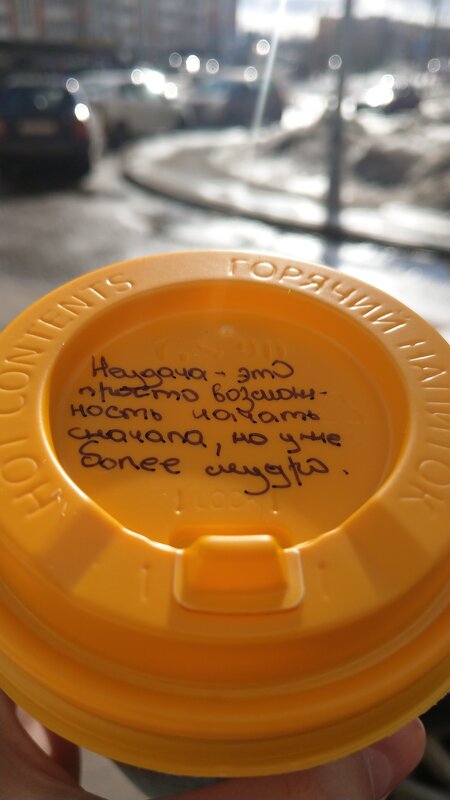 HOT CONTENTS
ГОРЯЧИЙ НАПИТОК
Неудача - это
просто возмож-
ность начать
сначала, но уже
более мудро.
LOCK